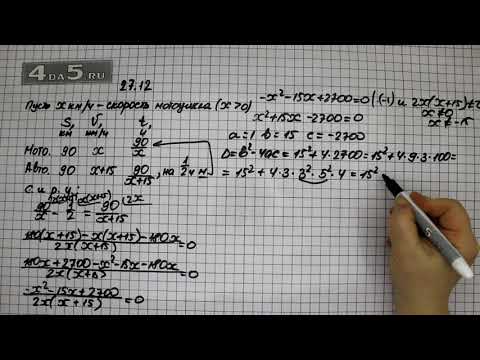 4DA5.RU
27.12
Пусть x км/ч – скорость мотоцикла (x>0)
S, км V, км/ч t, ч
Мото. 90 x 90/x
Авто. 90 x+15 90/(x+15), на 1/2 ч м
С. и р. у.:
90/x - 1/2 = 90/(x+15) (2x
(180(x+15) - x(x+15) - 180x)/(2x(x+15)) = 0
(180x + 2700 - x² - 15x - 180x)/(2x(x+15)) = 0
(-x² - 15x + 2700)/(2x(x+15)) = 0
-x² - 15x + 2700 = 0 |:(-1) и 2x(x+15)≠0
x² + 15x - 2700 = 0 x≠0 x≠-15
a = 1 b = 15 c = -2700
D = b² - 4ac = 15² + 4·2700 = 15² + 4·9·3·100 =
= 15² + 4·3·3²·5²·4 = 15²